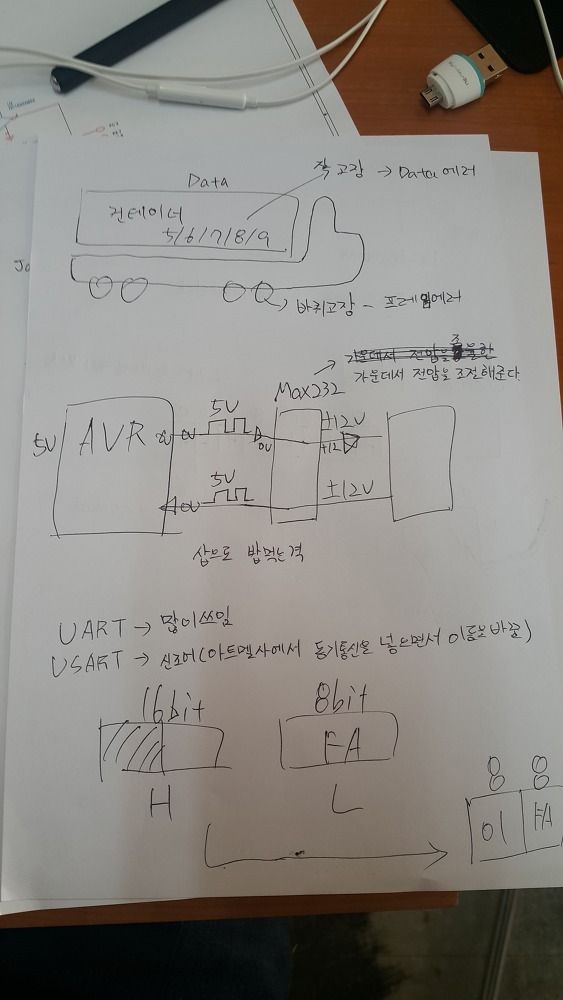 Data
짝고장 → Data 에러
컨테이너
5/6/7/8/9
바퀴고장 - 프레임에러
가운데서 전압을 조절해준다
Max232
5V
AVR
0V
5V
0V
±12V
+12
0V
5V
±12V
삽으로 밥먹는격
UART → 많이쓰임
USART → 신조어(아트멜사에서 동기통신을 넣으면서 이름을바꿈)
16bit
8bit
FA
H
L
8 8
8 8
01 FA